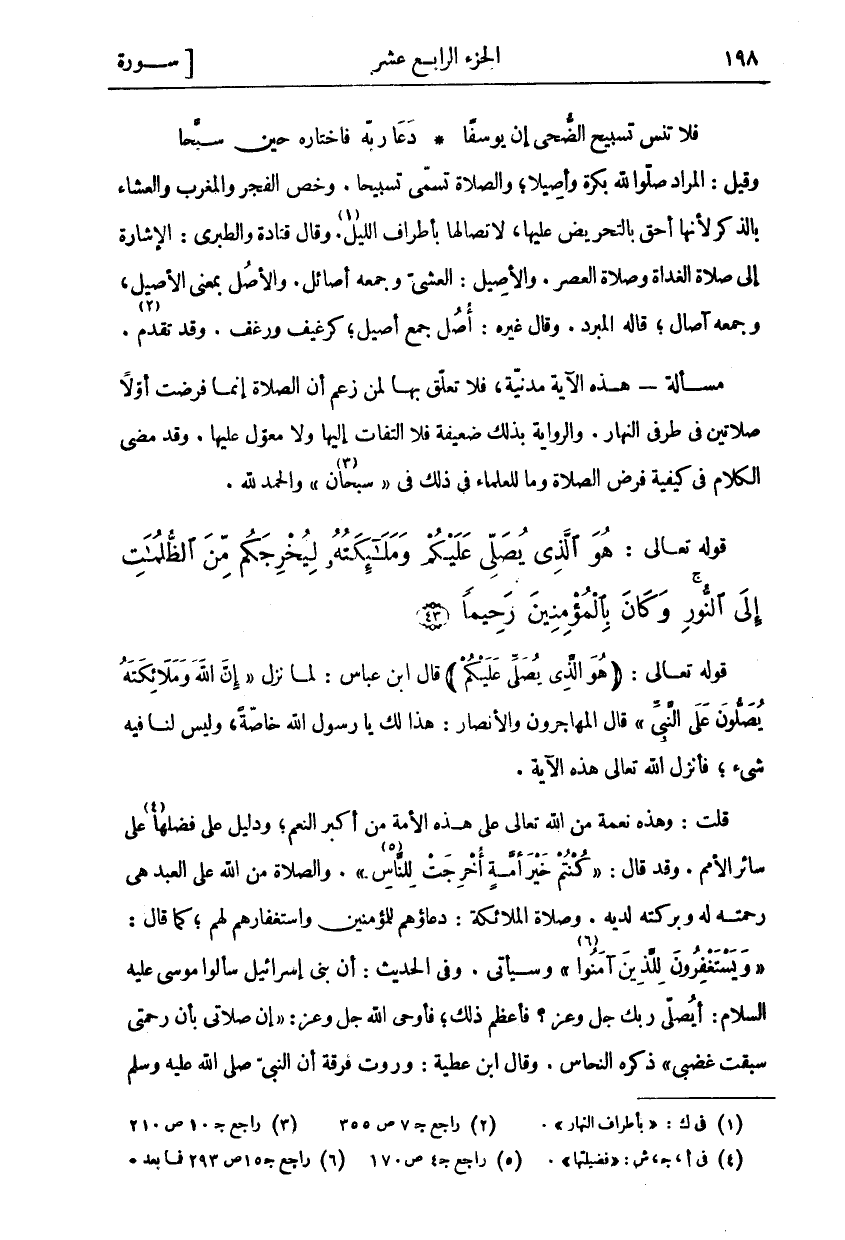 ١٩٨ الجزء الرابع عشر [ ســـورة
فلا تنس تسبيح الضُّحى إن يوسفًا * دَعَا ربّه فاختاره حين سبَّحا
وقيل : المراد صلّوا لله بكرة وأصيلا؛ والصلاة تسمّى تسبيحا . وخص الفجر والمغرب والعشاء
بالذكر لأنها أحق بالتحريض عليها، لاتصالها بأطراف الليل(١). وقال قتادة والطبرى : الإشارة
إلى صلاة الغداة وصلاة العصر . والأصيل : العشىّ وجمعه أصائل. والأُصُل بمعنى الأصيل،
وجمعه آصال ؛ قاله المبرد . وقال غيره : أُصُل جمع أصيل؛ كرغيف ورغف . وقد تقدم(٢) .
مســألة — هــذه الآية مدنيّة، فلا تعلّق بهــا لمن زعم أن الصلاة إنمــا فرضت أوّلًا
صلاتين فى طرفى النهار . والرواية بذلك ضعيفة فلا التفات إليها ولا معوّل عليها . وقد مضى
الكلام فى كيفية فرض الصلاة وما للعلماء فى ذلك فى « سبحان(٣) » والحمد لله .
قوله تعــالى : هُوَ ٱلَّذِى يُصَلِّى عَلَيْكُمْ وَمَلَـٰٓئِكَتُهُۥ لِيُخْرِجَكُم مِّنَ ٱلظُّلُمَـٰتِ
إِلَى ٱلنُّورِ ۚ وَكَانَ بِٱلْمُؤْمِنِينَ رَحِيمًا ﴿٤٣﴾
قوله تعــالى : ﴿هُوَ الَّذِى يُصَلِّى عَلَيْكُمْ﴾ قال ابن عباس : لمــا نزل « إِنَّ اللهَ وَمَلَائِكَتَهُ
يُصَلُّونَ عَلَى النَّبِىِّ » قال المهاجرون والأنصار : هذا لك يا رسول الله خاصّةً، وليس لنــا فيه
شىء ؛ فأنزل الله تعالى هذه الآية .
قلت : وهذه نعمة من الله تعالى على هــذه الأمة من أكبر النعم؛ ودليل على فضلها(٤) على
سائر الأمم . وقد قال : «كُنْتُمْ خَيْرَ أُمَّــةٍ أُخْرِجَتْ لِلنَّاسِ(٥)» . والصلاة من الله على العبد هى
رحمتــه له وبركته لديه . وصلاة الملائكة : دعاؤهم للمؤمنين واستغفارهم لهم ؛ كما قال :
« وَيَسْتَغْفِرُونَ لِلَّذِينَ آمَنُوا(٦) » وســيأتى . وفى الحديث : أن بنى إسرائيل سألوا موسى عليه
السلام: أيُصلّى ربك جل وعز ؟ فأعظم ذلك؛ فأوحى الله جل وعز: «إن صلاتى بأن رحمتى
سبقت غضبى» ذكره النحاس . وقال ابن عطية : وروت فرقة أن النبىّ صلى الله عليه وسلم
(١) فى ك : « بأطراف النهار» . (٢) راجع جـ ٧ ص ٣٥٥ (٣) راجع جـ ١٠ ص ٢١٠
(٤) فى أ ، جـ ، ش : «فضيلتها» . (٥) راجع جـ ٤ ص ١٧٠ (٦) راجع جـ ١٥ ص ٢٩٣ فــا بعد .